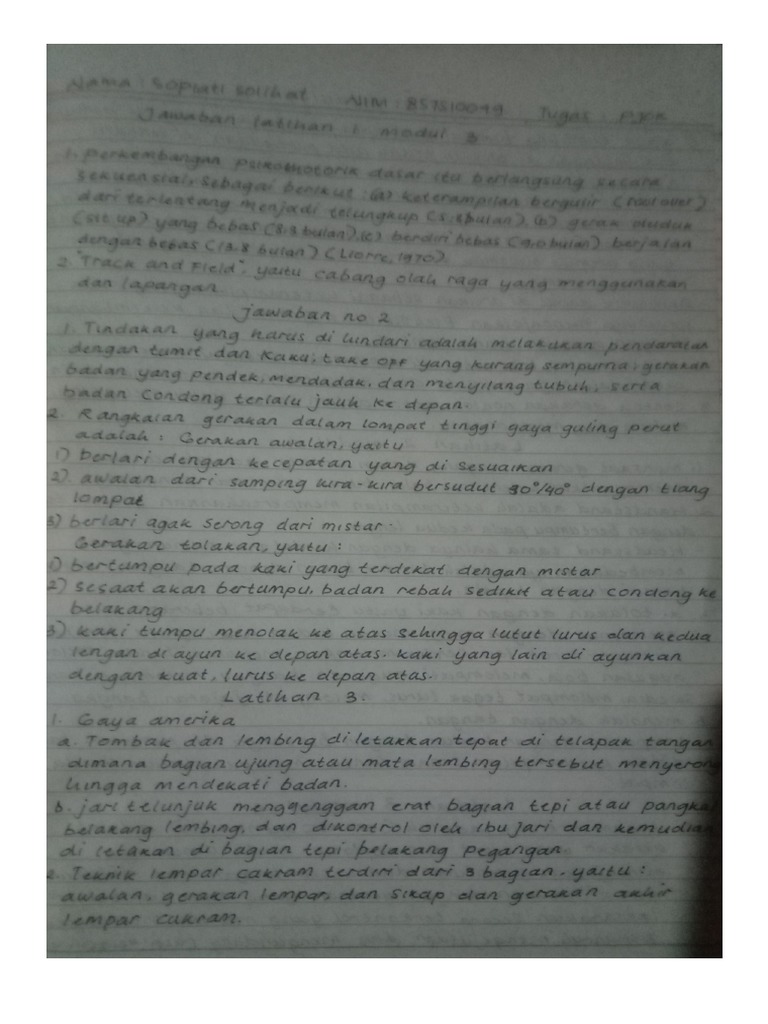 Nama : Sopiati Solihat NIM : 857510049 Tugas PJOK
Jawaban latihan 1 modul 3
1. perkembangan psikomotorik dasar itu berlangsung secara
sekuensial, sebagai berikut : (a) keterampilan bergulir (rool over)
dari terlentang menjadi telungkup (5.8 bulan), (b) gerak duduk
(sit up) yang bebas (8.3 bulan), (c) berdiri bebas (9.0 bulan) berjalan
dengan bebas (13.8 bulan) (1970)
2. "Track and Field". yaitu cabang olah raga yang menggunakan
dan lapangan
jawaban no 2
1. Tindakan yang harus di lundari adalah melakukan pendaratan
dengan tumit dan kaku, take OFF yang kurang sempurna, gerakan
badan yang pendek, mendadak, dan menyilang tubuh, serta
badan condong terlalu jauh ke depan.
2. Rangkaian gerakan dalam lompat tinggi gaya guling perut
adalah : Gerakan awalan, yaitu
1) berlari dengan kecepatan yang di sesuaikan
2) awalan dari samping kira-kira bersudut 30°/40° dengan tiang
lompat
3) berlari agak serong dari mistar.
Gerakan tolakan, yaitu :
1) bertumpu pada kaki yang terdekat dengan mistar
2) sesaat akan bertumpu, badan rebah sedikit atau condong ke
belakang
3) kaki tumpu menolak ke atas sehingga lutut lurus dan kedua
lengan di ayun ke depan atas. kaki yang lain di ayunkan
dengan kuat, lurus ke depan atas.
Latihan 3.
1. Gaya amerika
a. Tombak dan lembing di letakkan tepat di telapak tangan
dimana bagian ujung atau mata lembing tersebut menyerong
hingga mendekati badan.
b. jari telunjuk menggenggam erat bagian tepi atau pangkal
belakang lembing, dan dikontrol oleh ibu jari dan kemudian
di letakan di bagian tepi belakang pegangan.
2. Teknik lempar cakram terdiri dari 3 bagian, yaitu :
awalan, gerakan lempar, dan sikap dan gerakan akhir
lempar cakram.